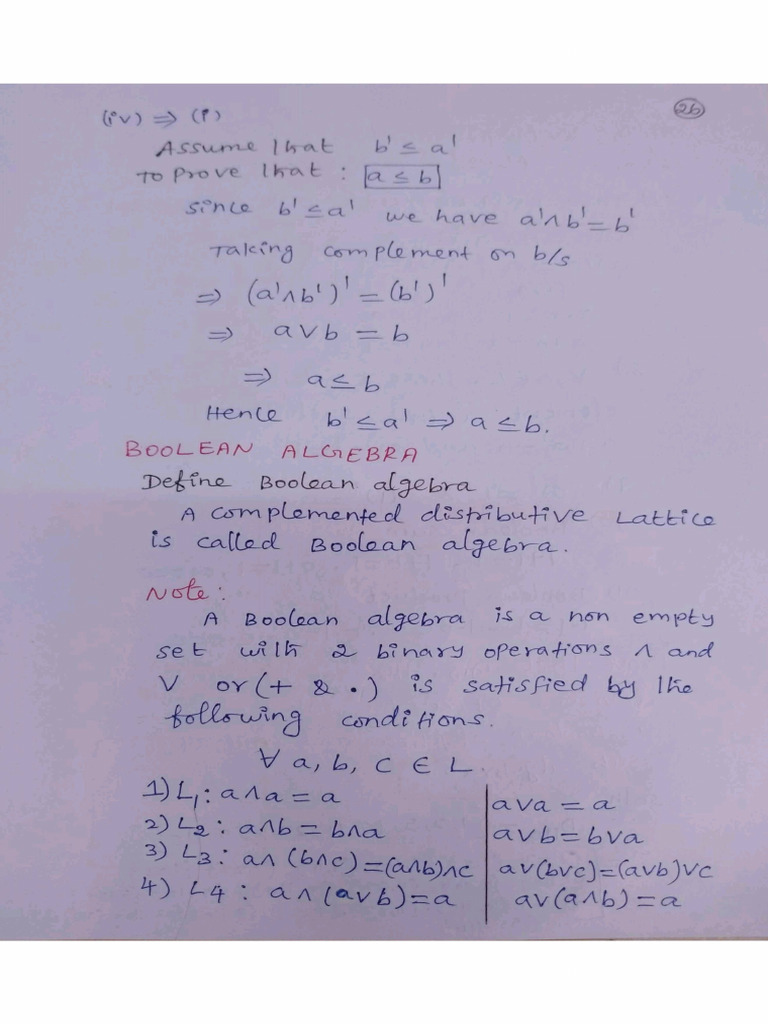 26
(iv) ⇒ (i)
Assume that b' ≤ a'
To prove that : a ≤ b
since b' ≤ a' we have a'∧b' = b'
Taking complement on b/s
⇒ (a'∧b')' = (b')'
⇒ a∨b = b
⇒ a ≤ b
Hence b' ≤ a' ⇒ a ≤ b.
BOOLEAN ALGEBRA
Define Boolean algebra
A complemented distributive Lattice
is called Boolean algebra.
Note:
A Boolean algebra is a non empty
set with 2 binary operations ∧ and
∨ or (+ & •) is satisfied by the
following conditions.
∀ a, b, c ∈ L.
1) L₁ : a∧a = a a∨a = a
2) L₂ : a∧b = b∧a a∨b = b∨a
3) L₃ : a∧(b∧c) = (a∧b)∧c a∨(b∨c) = (a∨b)∨c
4) L4 : a∧(a∨b) = a a∨(a∧b) = a